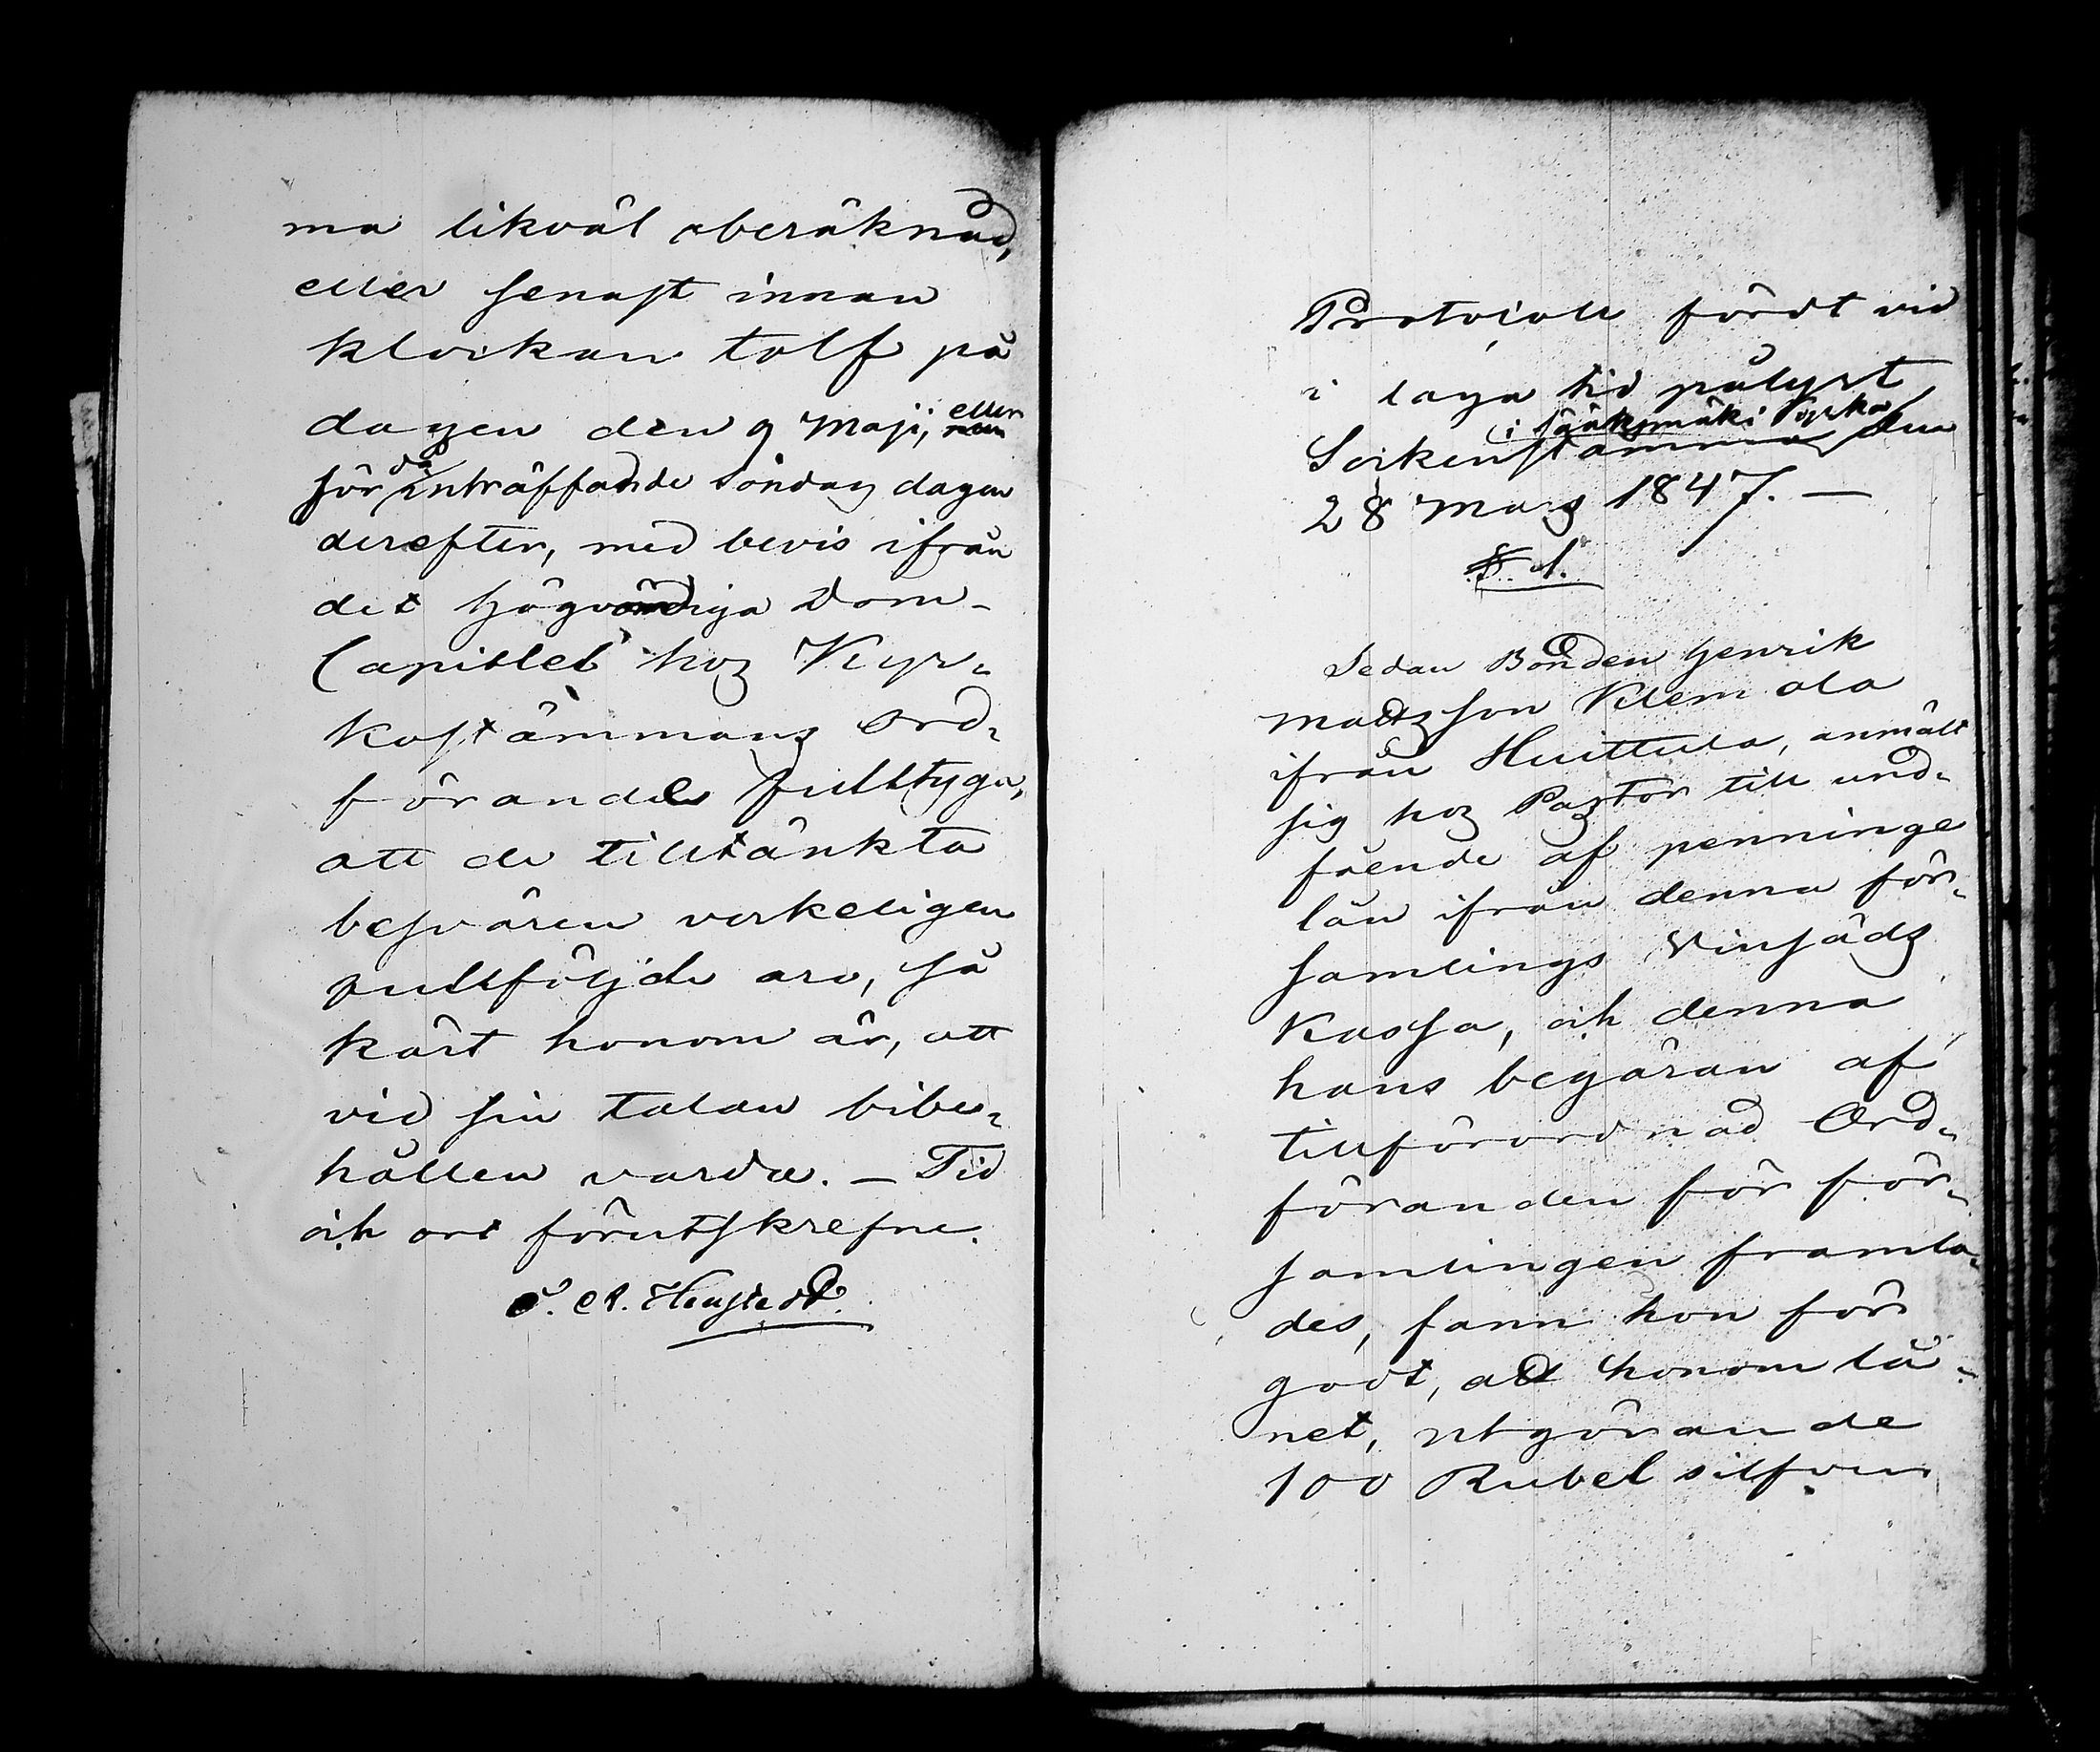 ma likväl oberäknad,
eller senast innan
klockan tolf på
dagen den 9 Maji, eller
för då inträffande söndag dagen
derefter, med bevis ifrån
det Högvördiga Dom-
Capitlet hos Kyr-
kostämmans Ord-
förande fulltyga,
att de tilltänkta
besvären verkeligen
fullföljde äro, så
kärt honom är, att
vid sin talan bibe-
hållen varda. — Tid
och ort förutskrefne.
C. A. Heurstedt
Protocoll fördt vid
i laga tid pålyst,
i Sääksmäki kyrka
Sockenstämma den
28 Mars 1847. —
§ 1.
Sedan Bonden Henrik
Mattsson Klemola
ifrån Huittula, anmält
sig hos Pastor till und-
fående af penninge
lån ifrån denna för-
samlings Vinsäds
Kassa, och denna
hans begäran af
tillförordnad Ord-
föranden för för-
samlingen framla-
des, fann hon för
godt, att honom lå-
net, utgörande
100 Rubel silfver